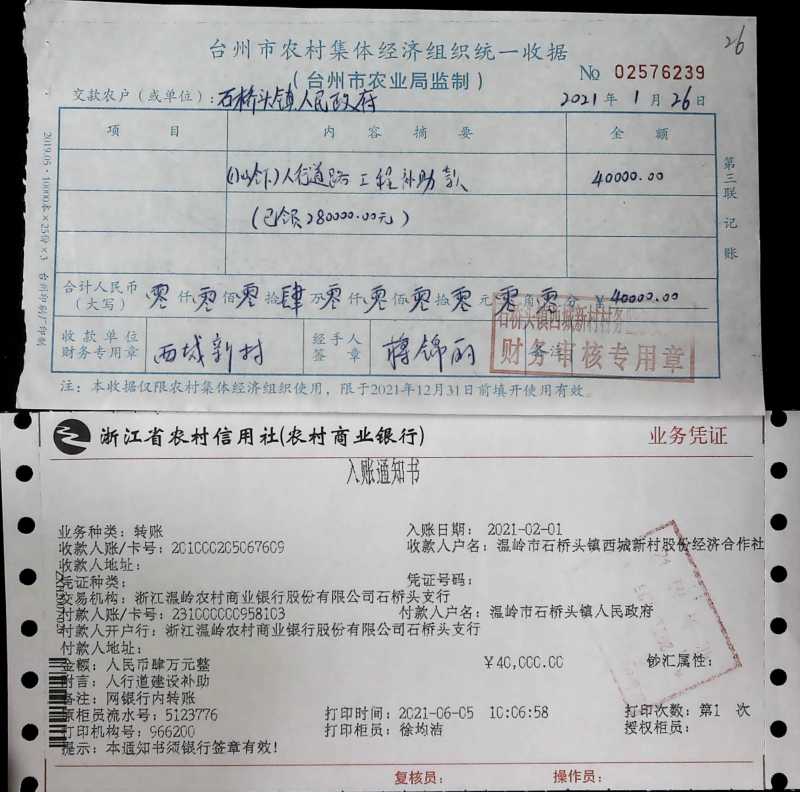 26
台州市农村集体经济组织统一收据
（台州市农业局监制）
No 02576239
交款农户（或单位）：石桥头镇人民政府
2021年1月26日
项目 内容摘要 金额
人行道路工程补助款 40000.00
（已领280000.00元）
合计人民币（大写） 零仟零佰零拾肆万零仟零佰零拾零元零角零分 ¥40000.00
收款单位财务专用章 西城新村 经手人签章 蒋锦丽
财务审核专用章
注：本收据仅限农村集体经济组织使用，限于2021年12月31日前填开使用有效。
第三联 记账
浙江省农村信用社(农村商业银行)
业务凭证
入账通知书
业务种类：转账 入账日期： 2021-02-01
收款人账/卡号：201000205067609 收款人户名：温岭市石桥头镇西城新村股份经济合作社
收款人地址：
凭证种类： 凭证号码：
交易机构：浙江温岭农村商业银行股份有限公司石桥头支行
付款人账/卡号：231000000958103 付款人户名：温岭市石桥头镇人民政府
付款人开户行：浙江温岭农村商业银行股份有限公司石桥头支行
付款人地址：
金额：人民币肆万元整 ¥40,000.00 钞汇属性：
附言：人行道建设补助
备注：网银行内转账
原柜员流水号：5123776 打印时间：2021-06-05 10:06:58 打印次数：第1 次
打印机构号：966200 打印柜员：徐均洁 授权柜员：
提示：本通知书须银行签章有效！
复核员： 操作员：